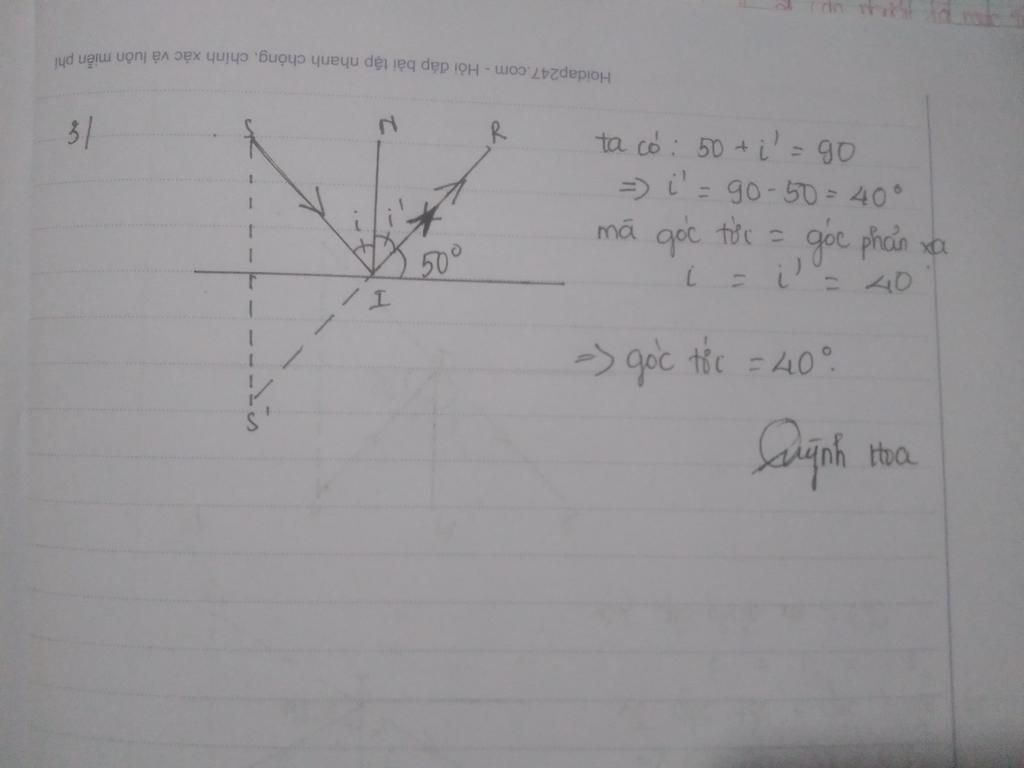 Hoidap247.com - Hỏi đáp bài tập nhanh chóng, chính xác và luôn miễn phí
3/
S N R
i i'
50°
I
S'
ta có: 50 + i' = 90
=> i' = 90 - 50 = 40°
mà góc tới = góc phản xạ
i = i' = 40
=> góc tới = 40°.
Quỳnh Hoa